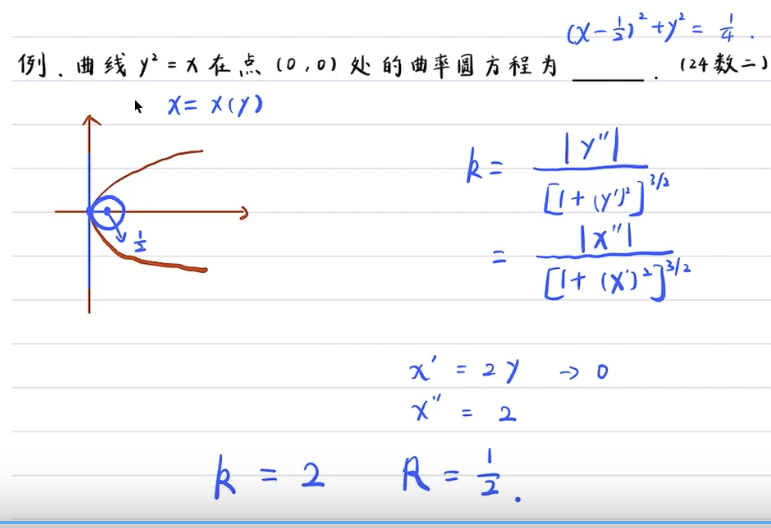 (x-½)²+y²=¼.
例. 曲线 y²=x 在点 (0,0) 处的曲率圆方程为 ______. (24数二)
x = x(y)
k = |y''| / [1+(y')²]^{3/2}
½
= |x''| / [1+(x')²]^{3/2}
x' = 2y → 0
x'' = 2
k = 2 R = ½.